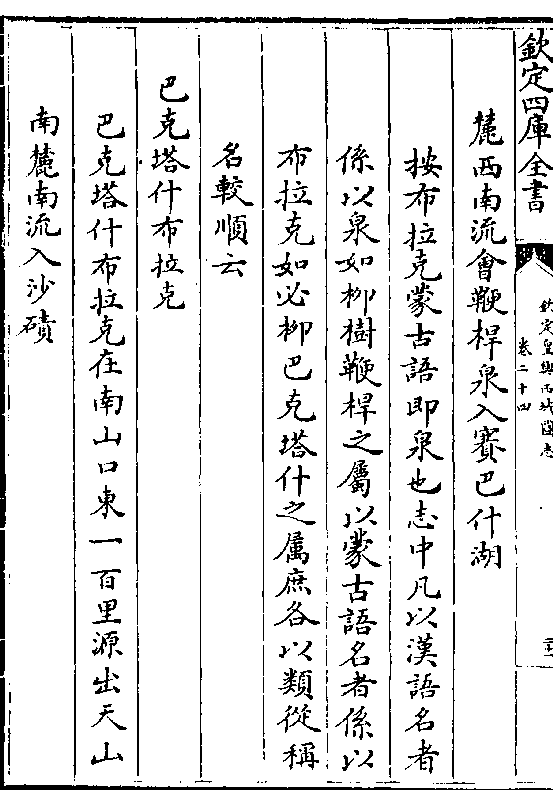 欽定四庫全書
欽定皇輿西域圖志
卷二十四
麓西南流會鞭桿泉入賽巴什湖
按布拉克蒙古語即泉也志中凡以漢語名者
係以泉如柳樹鞭桿之屬以蒙古語名者係以
布拉克如必柳巴克塔什之屬庶各以類從稱
名較順云
巴克塔什布拉克
巴克塔什布拉克在南山口東一百里源出天山
南麓南流入沙磧